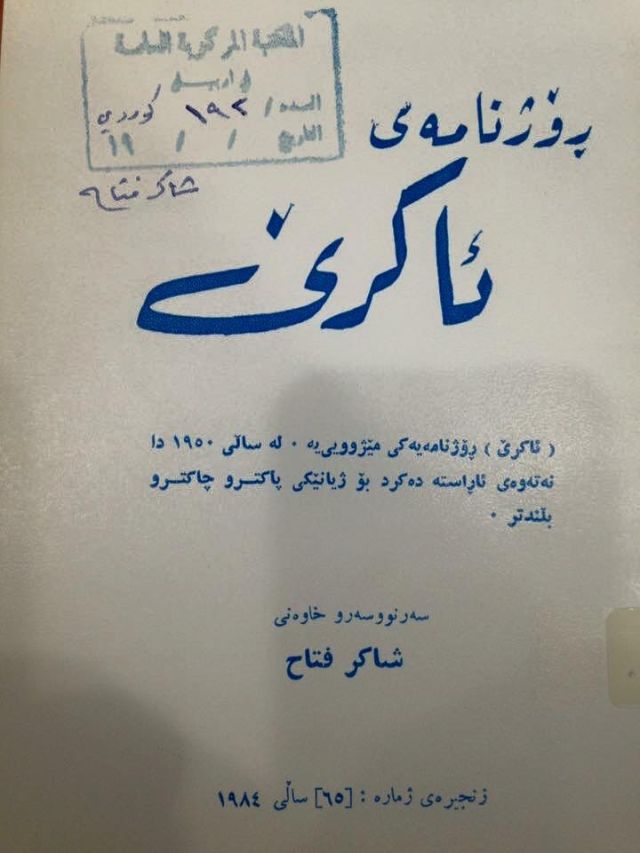 المكتبة المركزية العامة
في اربيل
العدد / ١٩٢ كوردي
التاريخ / / ١٩
شاكر فتاح
ڕۆژنامەی
ئاکرێ
( ئاکرێ ) ڕۆژنامەیەکی مێژوویی‌یە ٠ لە ساڵی ١٩٥٠ دا
نەتەوەی ئاڕاستە دەکرد بۆ ژیانێکی پاکتـرو چاکتـرو
بڵندتر ٠
سەرنووسەرو خاوەنی
شاکر فتاح
زنجیرەی ژمارە : [٦٥] ساڵی ١٩٨٤